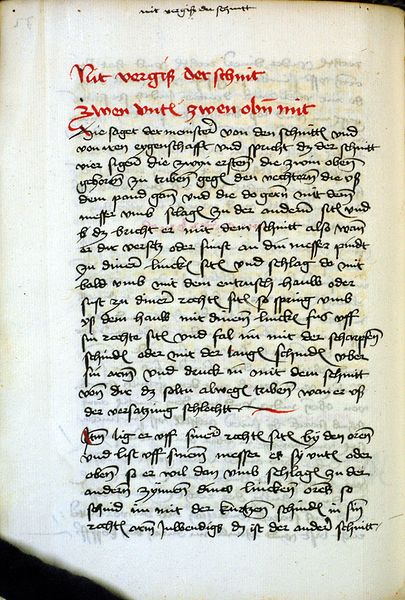 nit vergiß der schnitt
Nit vergiß der schnit
zwen vntñ zwen obñ mit
Hie saget der maister von den schnittñ vnd
von iren eygenschafft vnd spricht dz der schnitt
vier sigen die zwen ersten die zwen oben
gehören zu triben gegñ den vechtern die vß
dem pand gen vnd die do gern mit dem
messer vmb schlagñ zu der anderñ sitñ vnd
dz bricht er mit dem schnitt alß wan
er dir versetz oder sunst an din messer pindt
zu diner linckñ sitñ vnd schlag do mit
bald vmb mit dem entrusch hauw oder
sust zu diner rechtñ sitñ so spring vmb
vß dem hauw mit dinem linckñ fuß vff
sin rechte sitñ vnd fal im mit der scherpfen
schnidñ oder mit der langñ schnidñ vber
sin arm vnd druck in mit dem schnitt
von dir dz soltu alwegñ triben wan er vß
der versatzung schlecht
Item lig er vff siner rechtñ sitñ by den oren
vnd list vff sinem messer es sy vntñ oder
oben so er wil dan vmb schlagñ zu der
anderñ zymen dines linckeñ orcs so
schnid im mit der kurtzen schnidñ in sin
rechtñ arm Inwendigs dz ist der ander schnitt